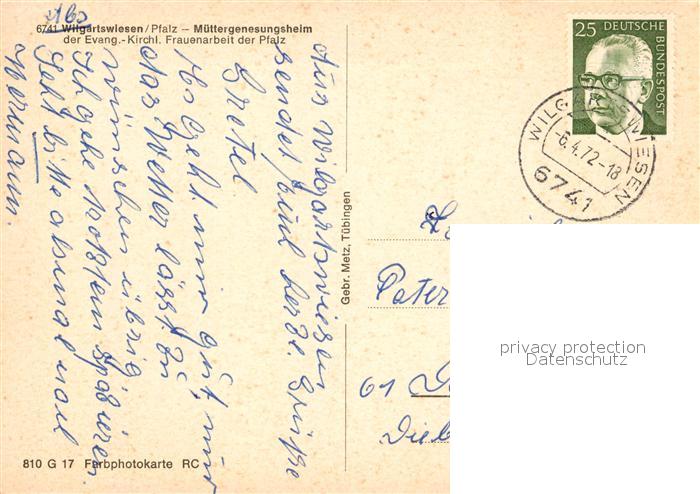 6741 Wilgartswiesen/Pfalz – Müttergenesungsheim
der Evang.-Kirchl. Frauenarbeit der Pfalz
Aus Wilgartswiesen
sendet Euch herzl. Grüße
Gretel.
Es geht mir gut, nur
das Wetter lässt zu
wünschen übrig.
Ich gehe trotzdem spazieren.
Seht bitte abmal nach
Hermann.
810 G 17 Farbphotokarte RC
Gebr. Metz, Tübingen
25 DEUTSCHE
BUNDESPOST
WILGARTSWIESEN
-6.4.72-18
6741
Peter
61
privacy protection
Datenschutz